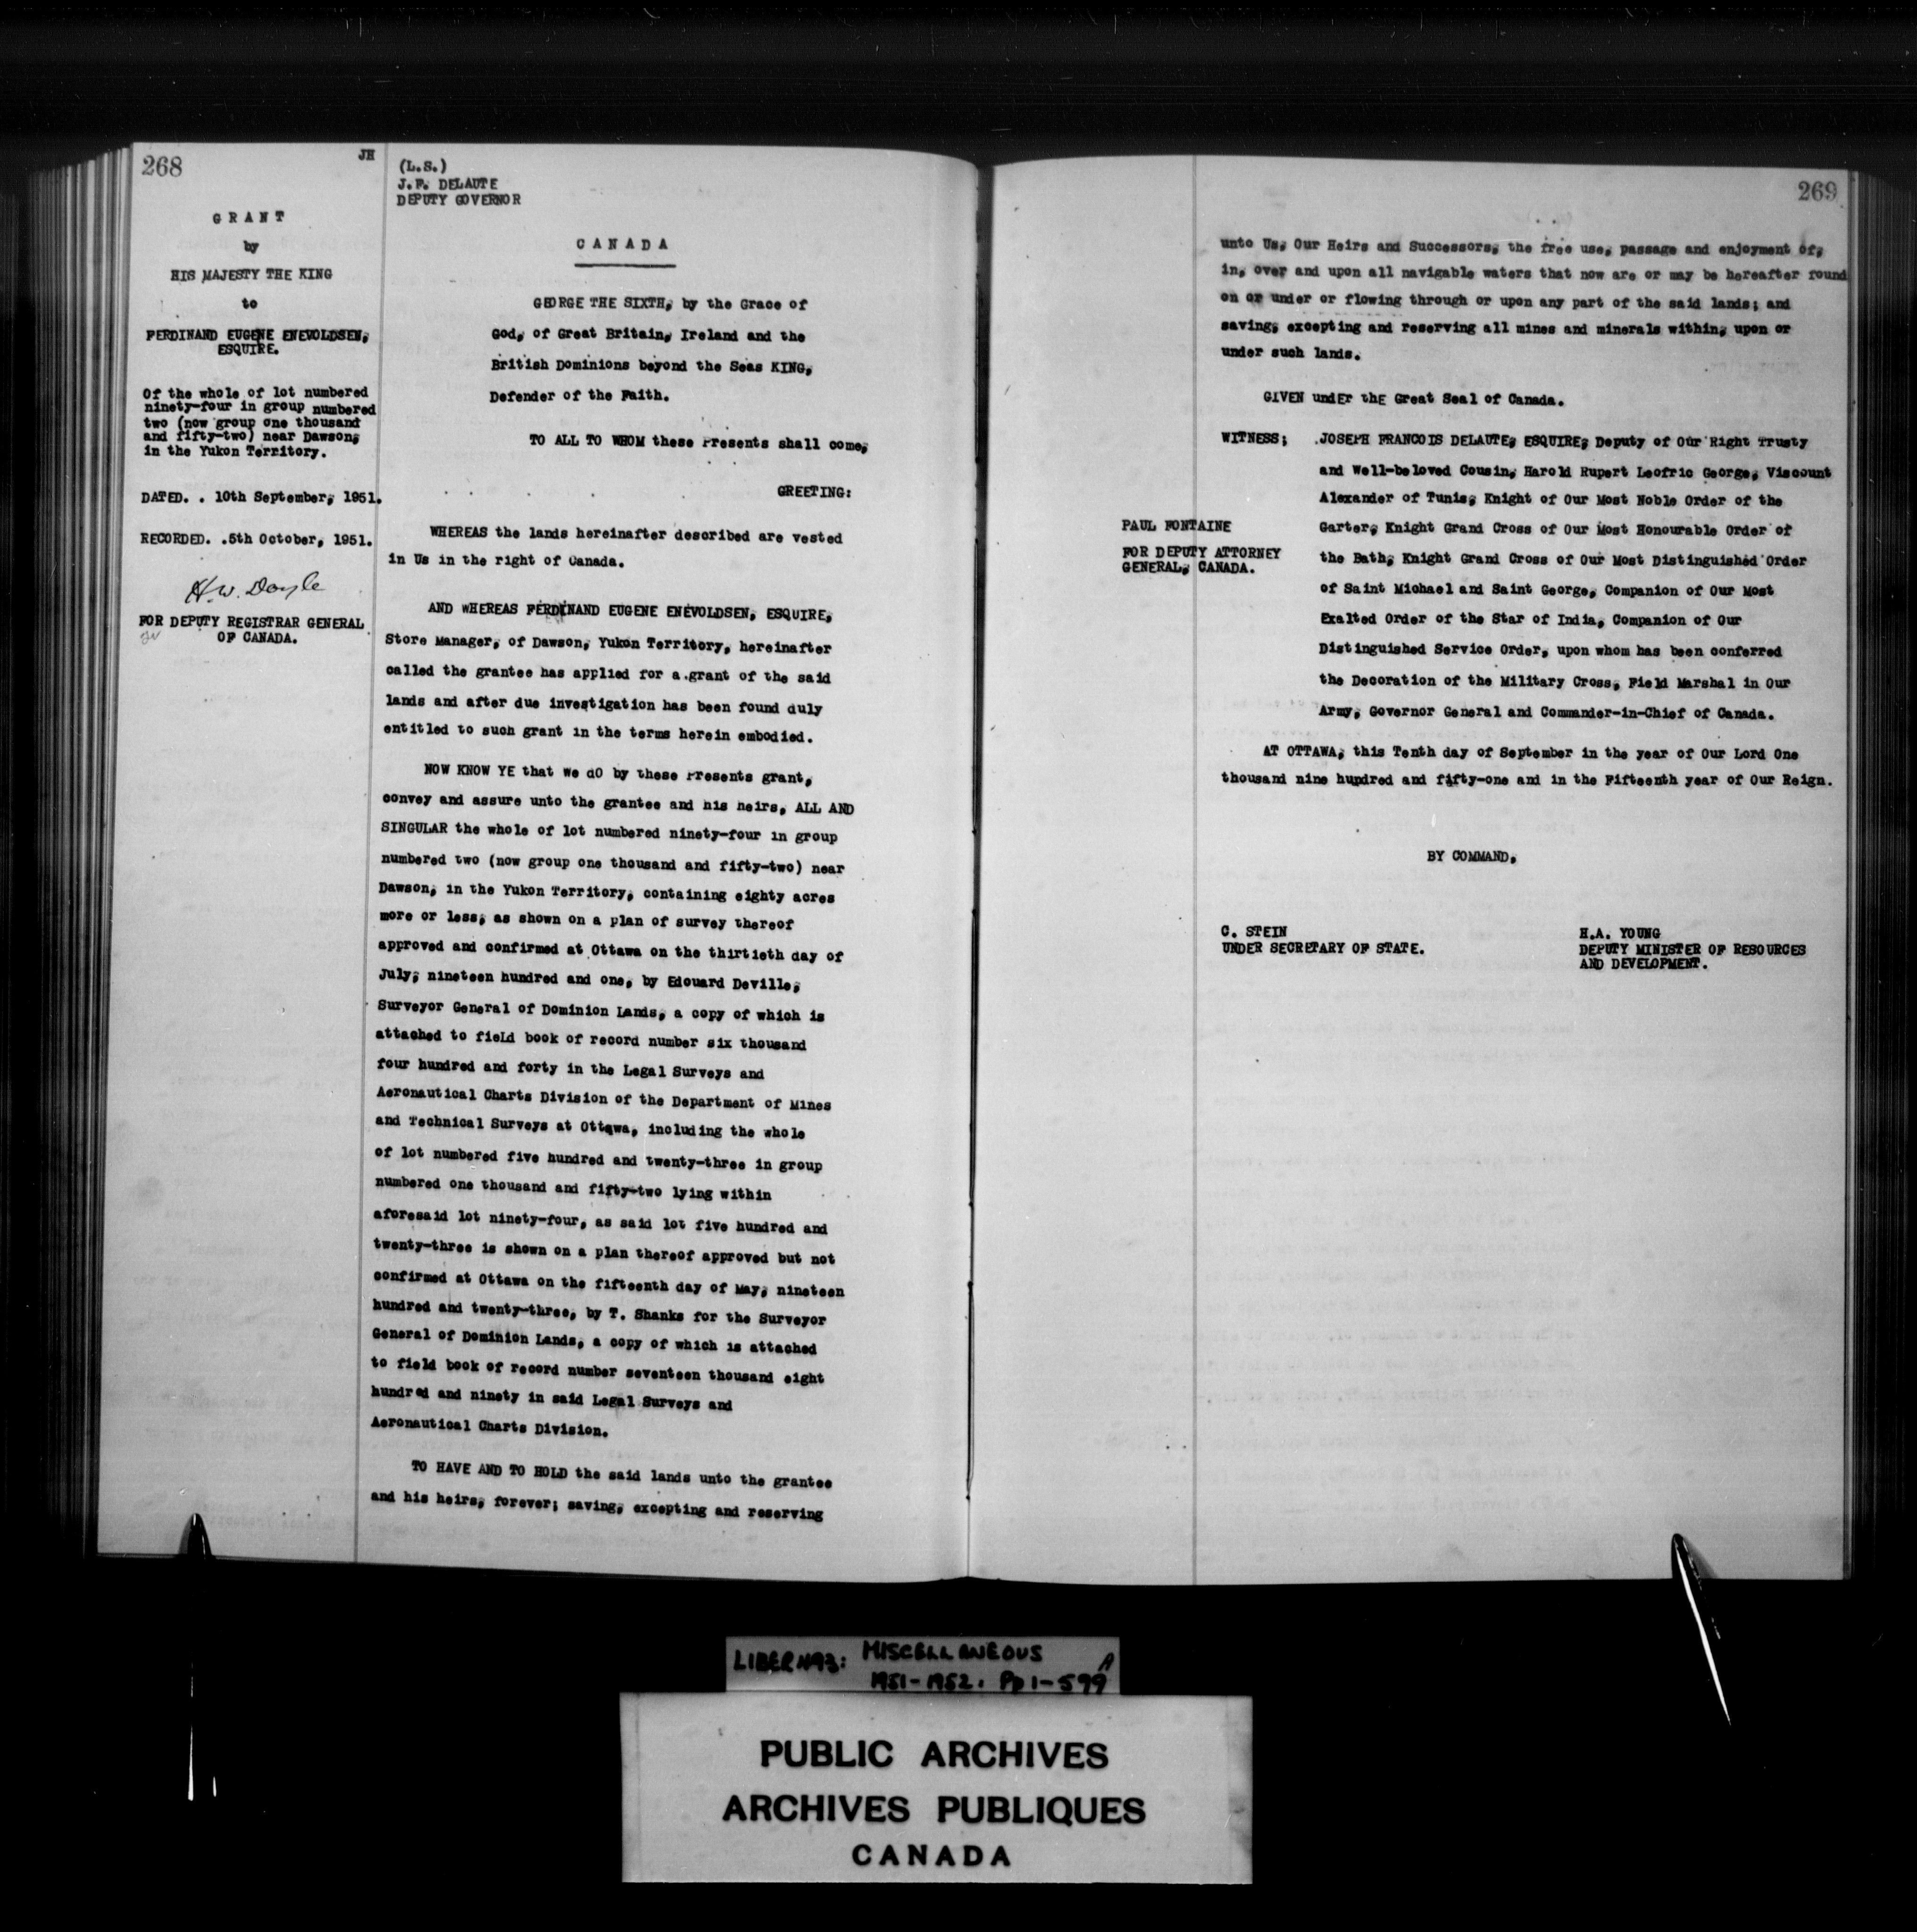 268
JH
GRANT
by
HIS MAJESTY THE KING
to
FERDINAND EUGENE ENEVOLDSEN,
ESQUIRE.
Of the whole of lot numbered
ninety-four in group numbered
two (now group one thousand
and fifty-two) near Dawson,
in the Yukon Territory.
DATED. . 10th September, 1951.
RECORDED. .5th October, 1951.
H.W. Doyle
FOR DEPUTY REGISTRAR GENERAL
OF CANADA.
(L.S.)
J.F. DELAUTE
DEPUTY GOVERNOR
CANADA
GEORGE THE SIXTH, by the Grace of
God, of Great Britain, Ireland and the
British Dominions beyond the Seas KING,
Defender of the Faith.
TO ALL TO WHOM these Presents shall come,
GREETING:
WHEREAS the lands hereinafter described are vested
in Us in the right of Canada.
AND WHEREAS FERDINAND EUGENE ENEVOLDSEN, ESQUIRE,
Store Manager, of Dawson, Yukon Territory, hereinafter
called the grantee has applied for a grant of the said
lands and after due investigation has been found duly
entitled to such grant in the terms herein embodied.
NOW KNOW YE that We dO by these Presents grant,
convey and assure unto the grantee and his heirs, ALL AND
SINGULAR the whole of lot numbered ninety-four in group
numbered two (now group one thousand and fifty-two) near
Dawson, in the Yukon Territory, containing eighty acres
more or less, as shown on a plan of survey thereof
approved and confirmed at Ottawa on the thirtieth day of
July, nineteen hundred and one, by Edouard Deville,
Surveyor General of Dominion Lands, a copy of which is
attached to field book of record number six thousand
four hundred and forty in the Legal Surveys and
Aeronautical Charts Division of the Department of Mines
and Technical Surveys at Ottawa, including the whole
of lot numbered five hundred and twenty-three in group
numbered one thousand and fifty-two lying within
aforesaid lot ninety-four, as said lot five hundred and
twenty-three is shown on a plan thereof approved but not
confirmed at Ottawa on the fifteenth day of May, nineteen
hundred and twenty-three, by T. Shanks for the Surveyor
General of Dominion Lands, a copy of which is attached
to field book of record number seventeen thousand eight
hundred and ninety in said Legal Surveys and
Aeronautical Charts Division.
TO HAVE AND TO HOLD the said lands unto the grantee
and his heirs, forever; saving, excepting and reserving
269
unto Us, Our Heirs and Successors, the free use, passage and enjoyment of,
in, over and upon all navigable waters that now are or may be hereafter found
on or under or flowing through or upon any part of the said lands; and
saving, excepting and reserving all mines and minerals within, upon or
under such lands.
GIVEN undEr thE Great Seal of Canada.
WITNESS; JOSEPH FRANCOIS DELAUTE, ESQUIRE, Deputy of Our Right Trusty
and Well-beloved Cousin, Harold Rupert Leofric George, Viscount
Alexander of Tunis, Knight of Our Most Noble Order of the
Garter, Knight Grand Cross of Our Most Honourable Order of
the Bath, Knight Grand Cross of Our Most Distinguished Order
of Saint Michael and Saint George, Companion of Our Most
Exalted Order of the Star of India, Companion of Our
Distinguished Service Order, upon whom has been conferred
the Decoration of the Military Cross, Field Marshal in Our
Army, Governor General and Commander-in-Chief of Canada.
PAUL FONTAINE
FOR DEPUTY ATTORNEY
GENERAL, CANADA.
AT OTTAWA, this Tenth day of September in the year of Our Lord One
thousand nine hundred and fifty-one and in the Fifteenth year of Our Reign.
BY COMMAND,
C. STEIN
UNDER SECRETARY OF STATE.
H.A. YOUNG
DEPUTY MINISTER OF RESOURCES
AND DEVELOPMENT.
LIBER 493: MISCELLANEOUS A
1951-1952. Pp 1-599
PUBLIC ARCHIVES
ARCHIVES PUBLIQUES
CANADA